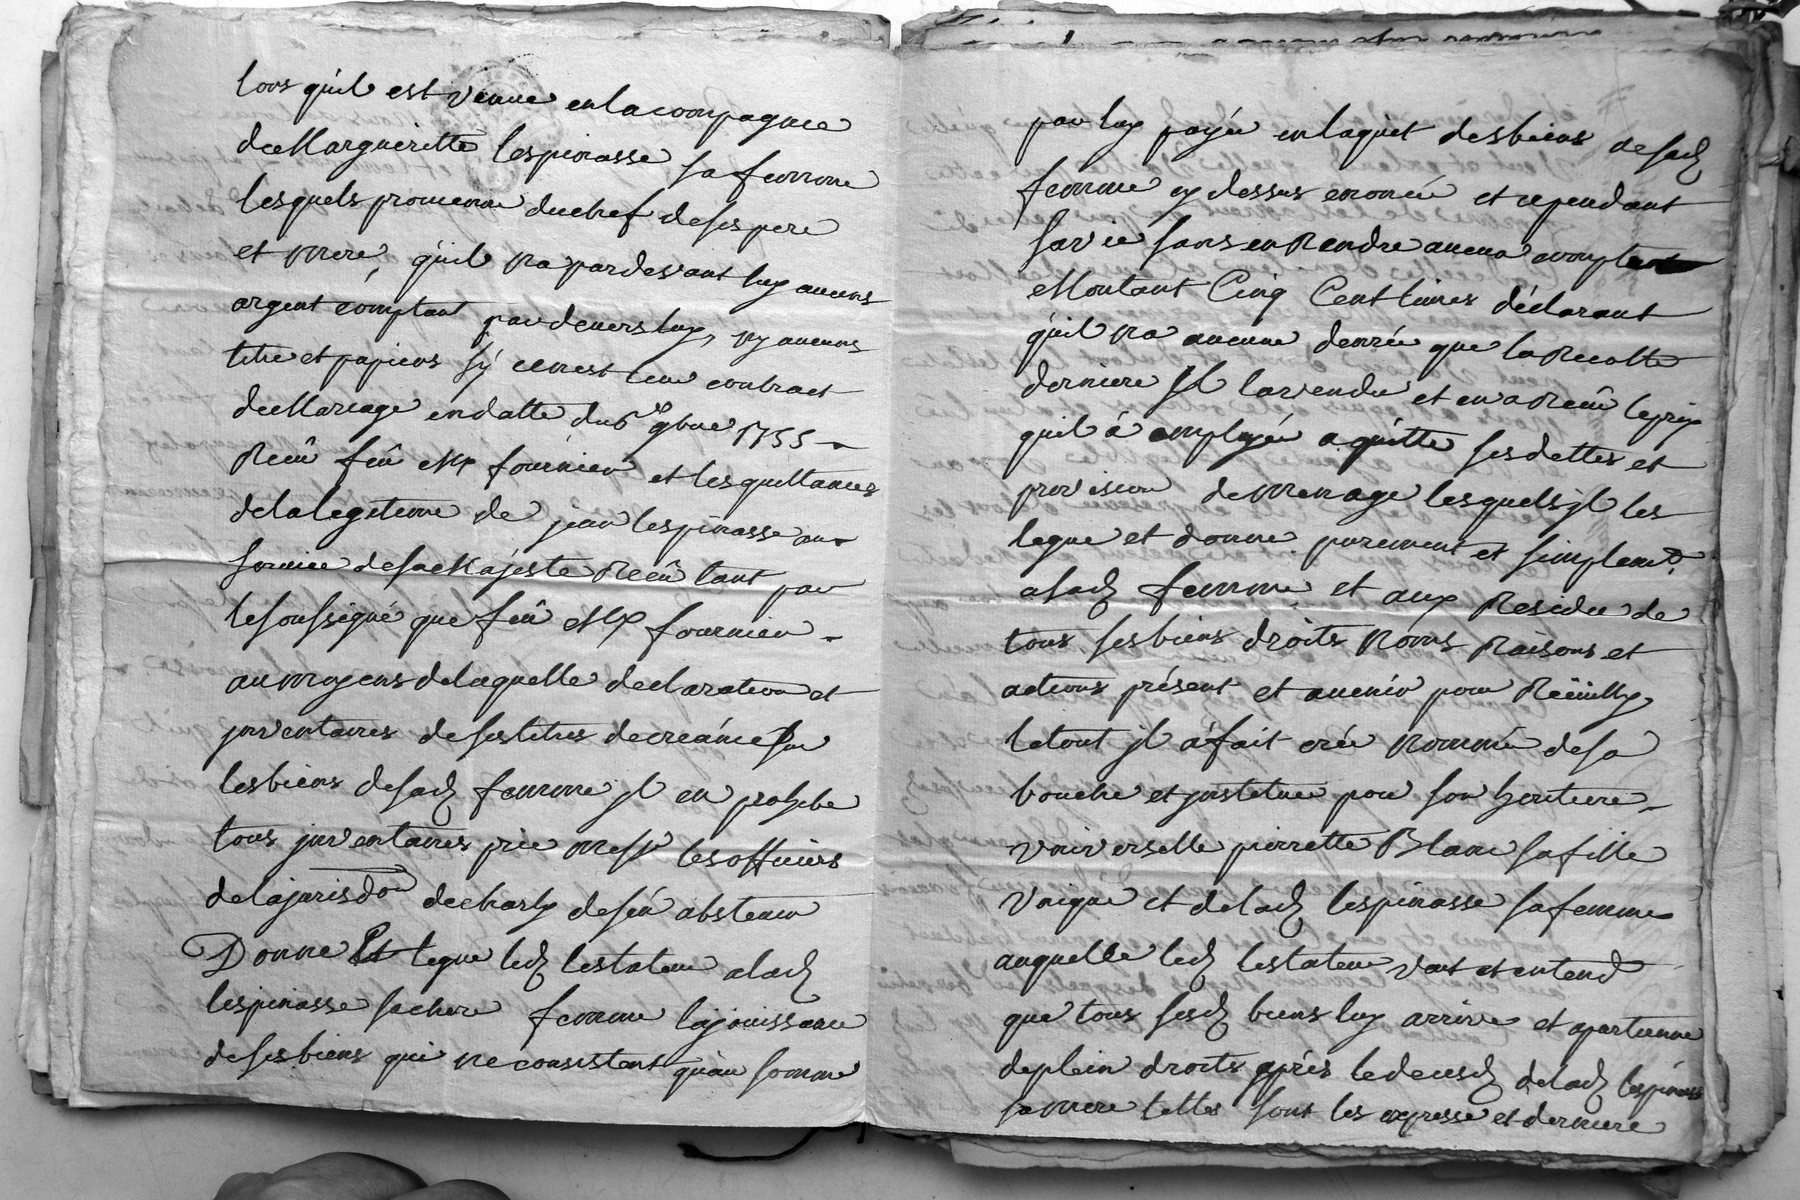 lors quil est venue en la compagnie
de Margueritte lespinasse sa femme
lesquels provienne du chef de ses pere
et mere, quil na pardevant luy aucuns
argent comptant par devers luy, ny aucuns
titre et papiers sy ce nest leur contract
de Mariage en datte du 6e 9bre 1755
Reçû feû Me fournier et les quittances
de la legitime de jean lespinasse au
service de sa Majesté Reçû tant par
le soussigné que feû Me fournier
au moyens de laquelle declaration et
jnventaires de ses titres de creance sur
les biens de sad femme jl en prohibe
tous jnventaires prie messrs les officiers
de la jurisdon de charly de sén abstenir
Donne Et legue led testateur a lad
lespinasse sa chere femme la jouissance
de ses biens qui ne consistent qu'en somme
par luy payée en laquit des biens de sad
femme cy dessus enoncée et cependant
sa vie sans en Rendre aucun compte
Montant Cinq Cent livres déclarant
quil na aucune denrée que la Recolte
derniere jl la vendu et en a Reçû le prix
quil à employée a quitte ses dettes et
provision de menage lesquels jl les
legue et donne purement et simplemt
a lad femme et aux Residu de
tous ses biens droits Noms Raisons et
actions présent et avenir pour Reüilly
le tout jl a fait crée Nommé de sa
bouche et jnstitue pour son heritiere
vniverselle pierrette Blanc sa fille
vnique et de lad lespinasse sa femme
auquelle led testateur veut et entend
que tous sesd biens luy arrive et apartienne
de plein droits après le deces de lad lespinasse
sa mere telles sont les expresse et derniere